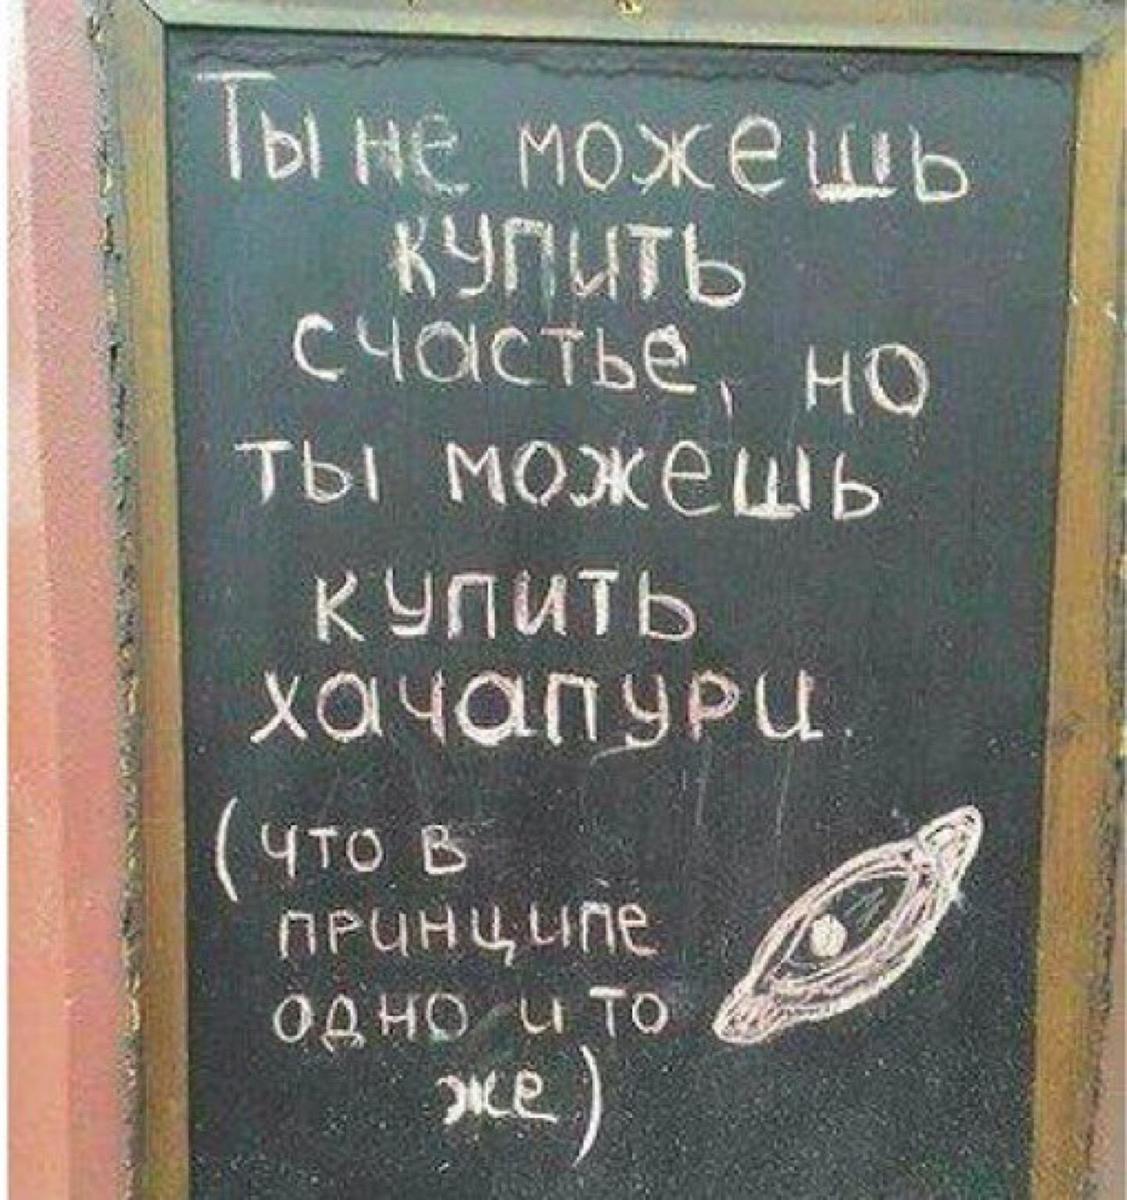 Ты не можешь
купить
счастье, но
ты можешь
купить
хачапури.
(что в
принципе
одно и то
же)